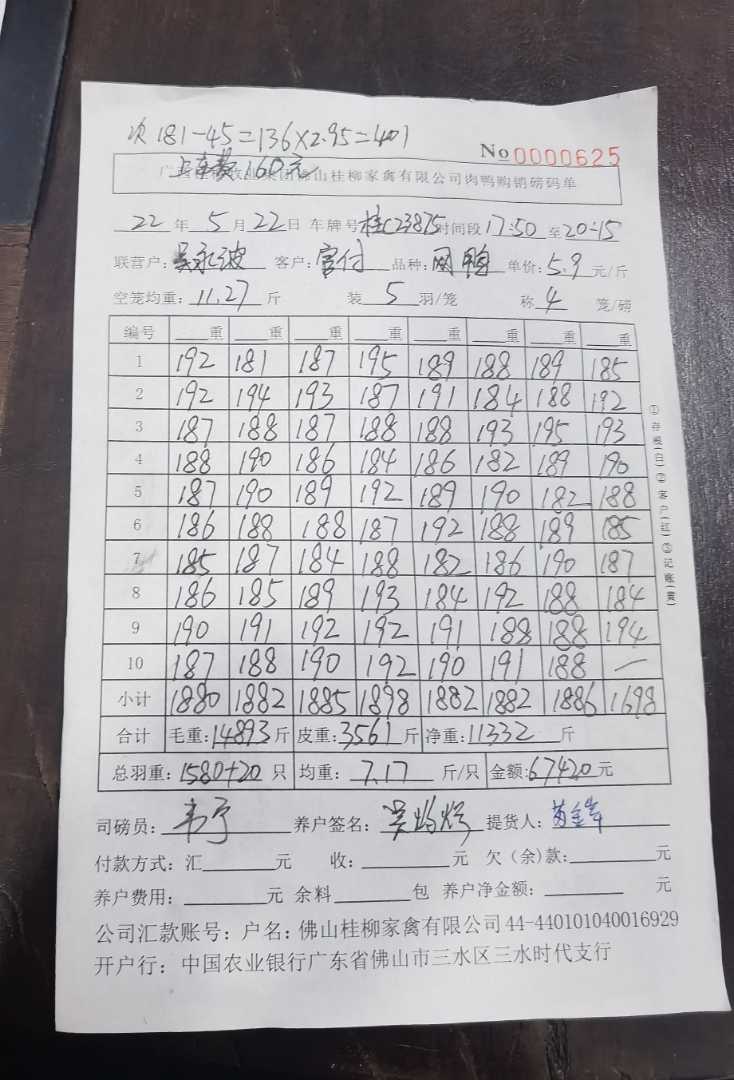 次 181-45=136×2.95=401
上车费160元
No 0000625
佛山桂柳家禽有限公司肉鸭购销磅码单
22年5月22日 车牌号桂C23875时间段17:50至20:15
联营户: 吴永波 客户: 官付 品种: 鸭 单价: 5.9元/斤
空笼均重: 11.27斤 装5羽/笼 称4笼/磅
编号 重 重 重 重 重 重 重 重
1 192 181 187 195 189 188 189 185
2 192 194 193 187 191 184 188 192
3 187 188 187 188 188 193 195 193
4 188 190 186 184 186 182 189 190
5 187 190 189 192 189 190 182 188
6 186 188 188 187 192 188 189 185
7 185 187 184 188 182 186 190 187
8 186 185 189 193 184 192 188 184
9 190 191 192 192 191 188 188 194
10 187 188 190 192 190 191 188 —
小计 1880 1882 1885 1898 1882 1882 1886 1698
合计 毛重: 14893斤 皮重: 3561斤 净重: 11332斤
总羽重: 1580+20只 均重: 7.17斤/只 金额: 67420元
司磅员: 养户签名: 提货人:
付款方式: 汇 元 收: 元 欠(余)款: 元
养户费用: 元 余料 包 养户净金额: 元
公司汇款账号: 户名: 佛山桂柳家禽有限公司 44-440101040016929
开户行: 中国农业银行广东省佛山市三水区三水时代支行
①存根(白)②客户(红)③记账(黄)